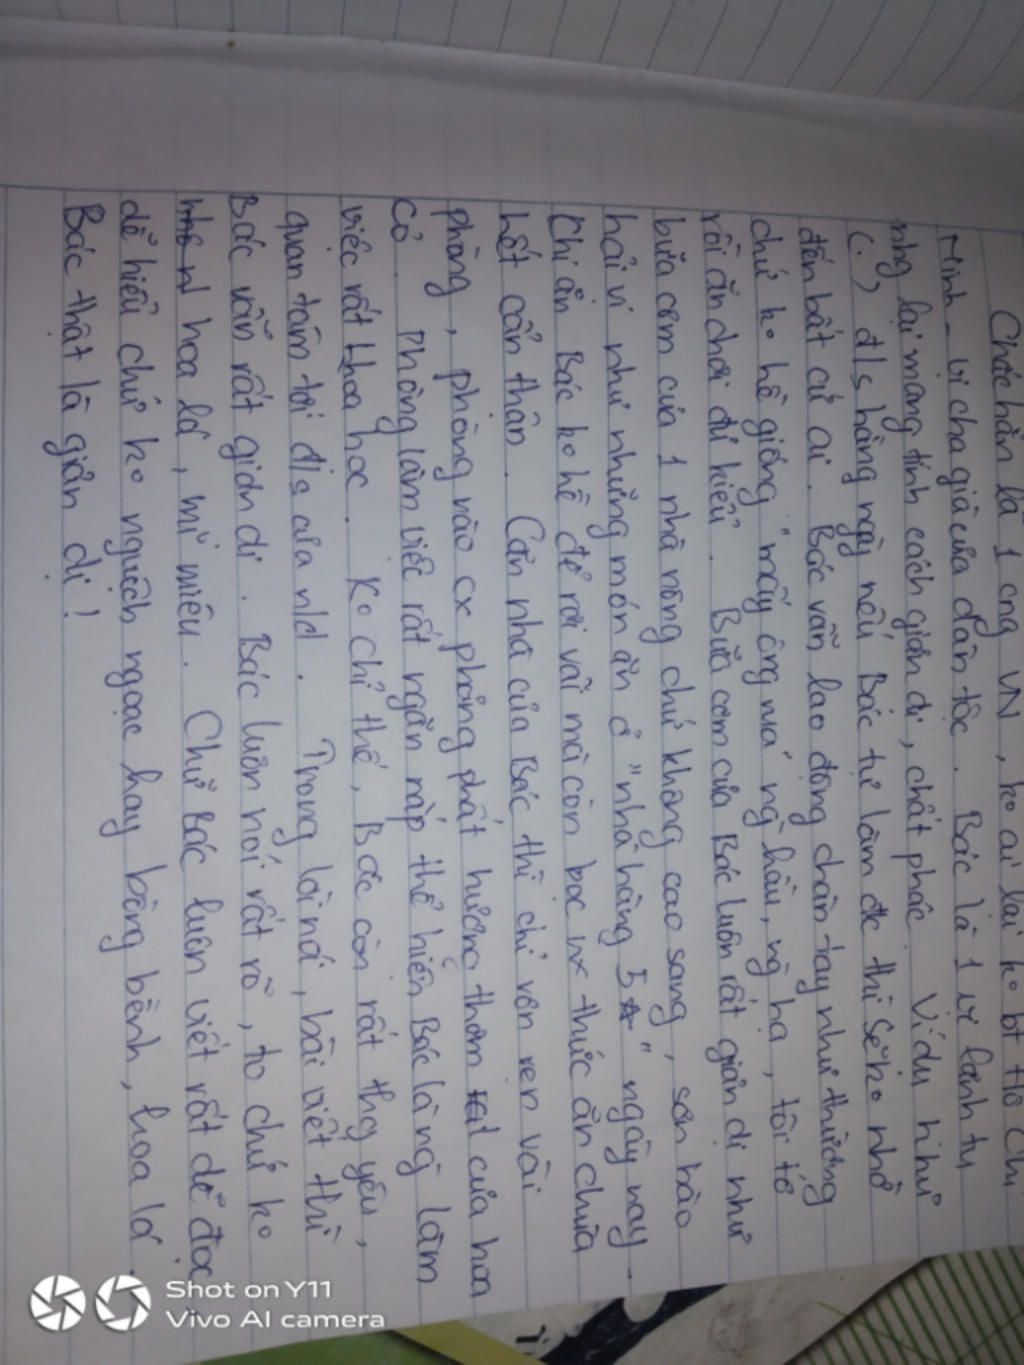 Chắc hẳn là 1 cng VN, ko ai lại ko bt Hồ Chí
Minh - vị cha già của dân tộc. Bác là 1 vị lãnh tụ
nhg lại mang tính cách giản dị, chất phác. Ví dụ như
(:) đ/s hằng ngày nếu Bác tự làm đc thì sẽ ko nhờ
đến bất cứ ai. Bác vẫn lao động chân tay như thường
chứ ko hề giống "mấy ông nua" ng hầu, ng hạ, tôi tớ
rồi ăn chơi đủ kiểu. Bữa cơm của Bác luôn rất giản dị như
bữa cơm của 1 nhà nông chứ không cao sang, sơn hào
hải vị như những món ăn ở "nhà hàng 5 ☆" ngày nay.
Chỉ ăn Bác ko hề để rơi vãi mà còn bọc vx thức ăn chừa
hết cẩn thận. Căn nhà của Bác thì chỉ vẻn vẹn vài
phòng, phòng nào cx phảng phất hương thơm của hoa
cỏ. Phòng làm việc rất ngăn nắp thể hiện Bác là ng làm
việc rất khoa học. Ko chỉ thế, Bác còn rất thg yêu,
quan tâm tới đ/s của nld. Trong lời nói, bài viết thì
Bác vẫn rất giản dị. Bác luôn nói rất rõ, to chứ ko
hoa lá, mĩ miều. Chữ Bác luôn viết rất dễ đọc,
dễ hiểu chứ ko nguệch ngoạc hay bồng bềnh, hoa lá.
Bác thật là giản dị!
Shot on Y11
Vivo AI camera